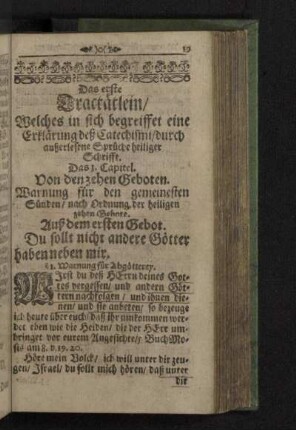 19
Das erste
Tractätlein/
Welches in sich begreiffet eine
Erklärung deß Catechismi/durch
außerlesene Sprüche heiliger
Schrifft.
Das 1. Capitel.
Von den zehen Geboten.
Warnung für den gemeinesten
Sünden/ nach Ordnung der heiligen
zehen Gebote.
Auß dem ersten Gebot.
Du sollt nicht andere Götter
haben neben mir.
§ 1. Warnung für Abgötterey.
Wirst du deß HErrn deines Got-
tes vergessen/ und andern Göt-
tern nachfolgen/ und ihnen die-
nen/ und sie anbeten/ so bezeuge
ich heute über euch/ daß ihr umkommen wer-
det eben wie die Heiden/ die der HErr um-
bringet vor eurem Angesichte/ 5 Buch Mo-
sis am 8. v. 19. 20.
Höre mein Volck/ ich will unter dir zeu-
gen/ Israel/ du sollt mich hören/ daß unter
dir